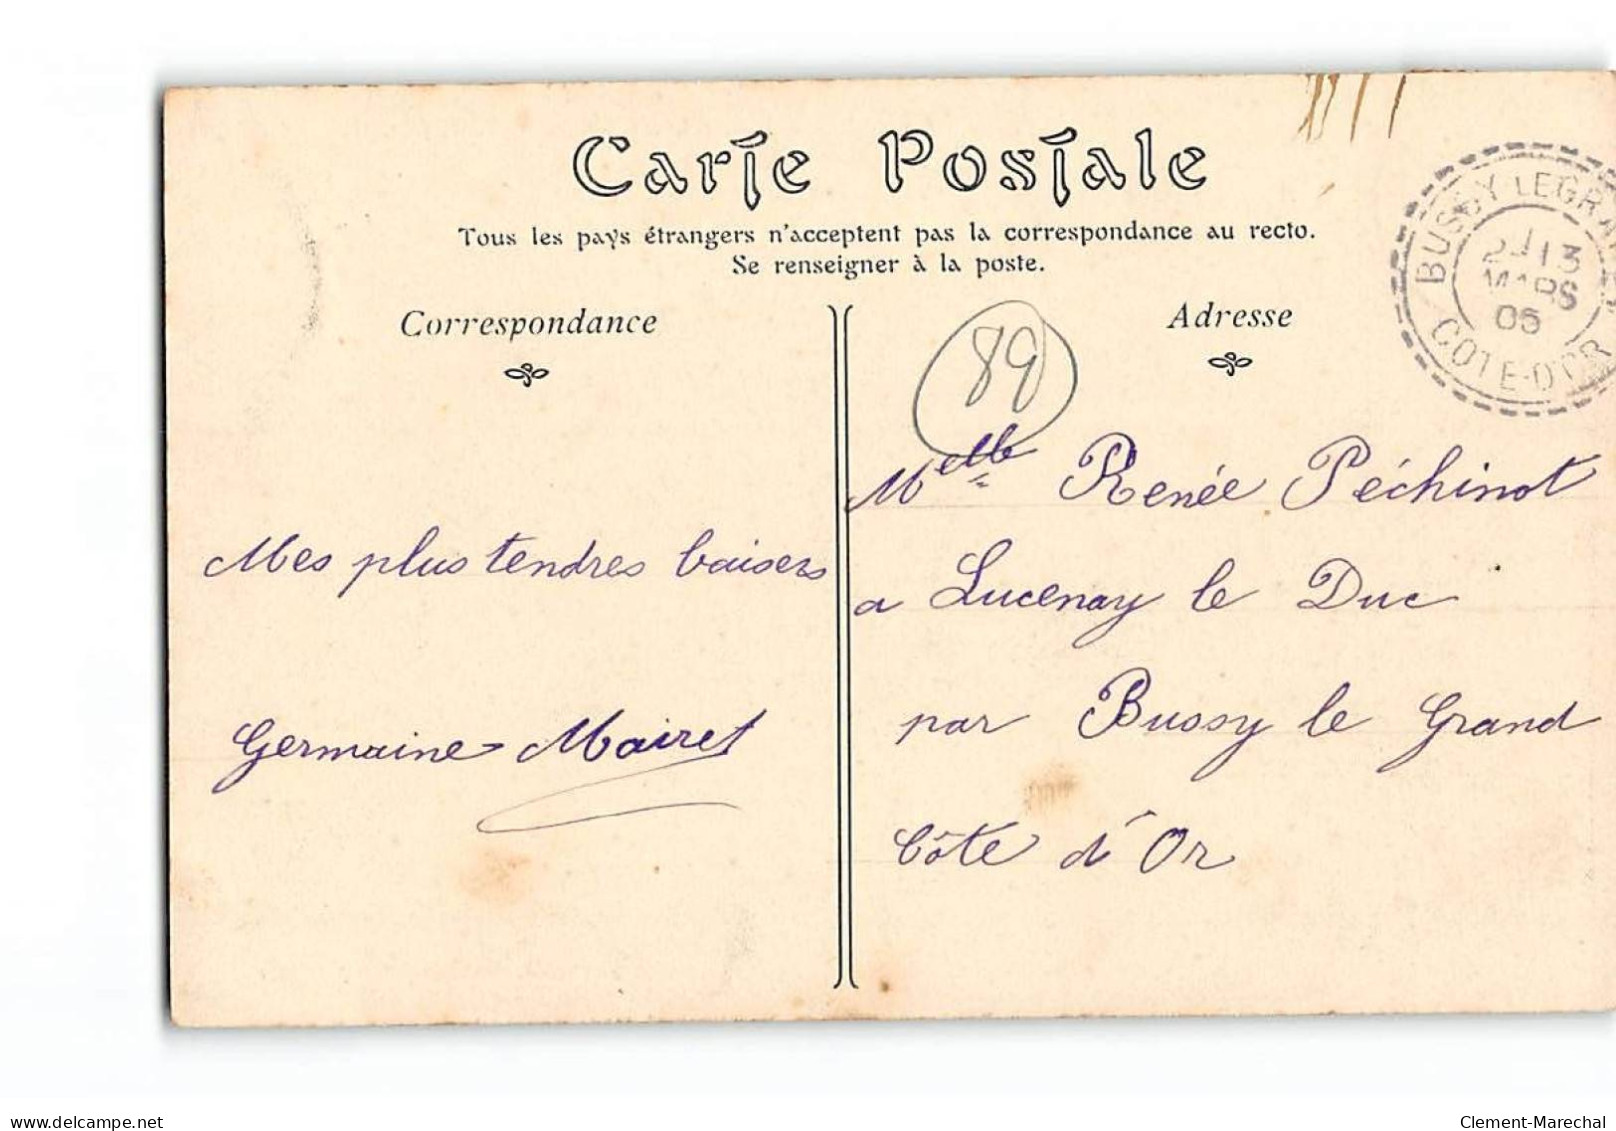 Carte Postale
Tous les pays étrangers n'acceptent pas la correspondance au recto.
Se renseigner à la poste.
Correspondance
Adresse
89
BUSSY-LEGRAND
13
MARS
05
COTE-D'OR
Mes plus tendres baisers
Germaine Mairet
Melle Renée Péchinot
a Lucenay le Duc
par Bussy le Grand
Côte d'Or
delcampe.net
Clement-Marechal